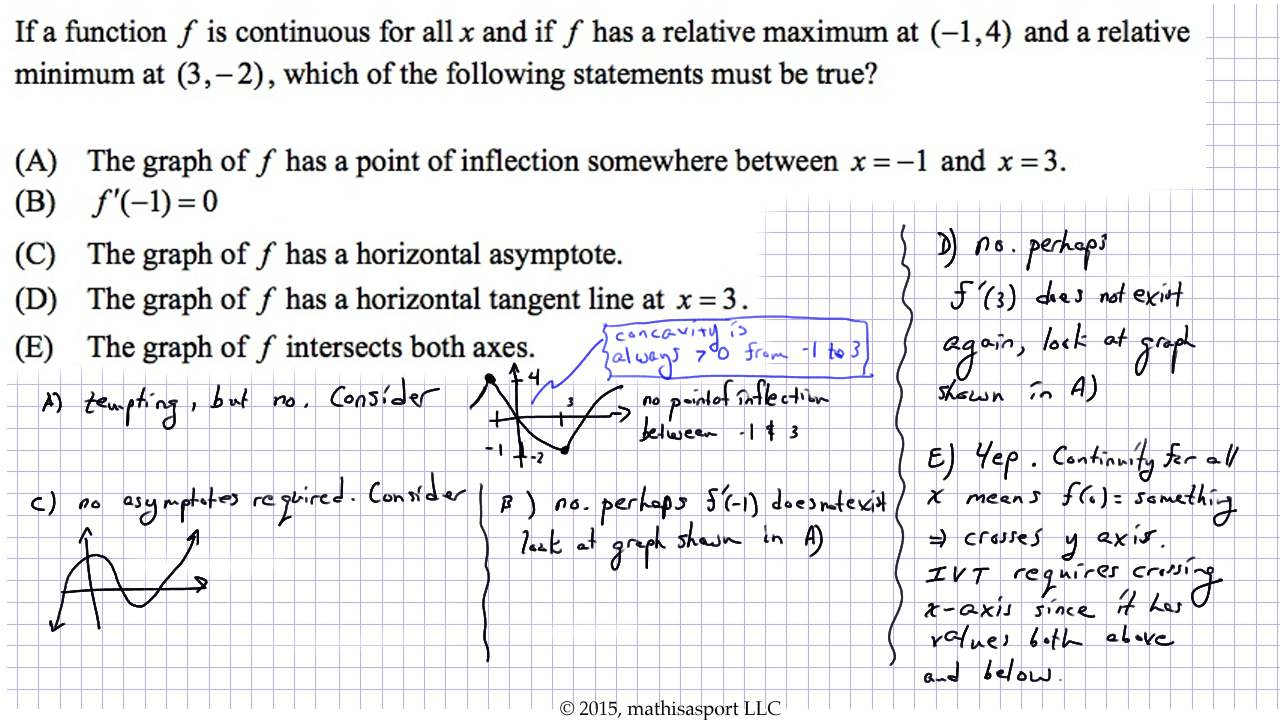 If a function f is continuous for all x and if f has a relative maximum at (−1,4) and a relative
minimum at (3,−2), which of the following statements must be true?
(A) The graph of f has a point of inflection somewhere between x = −1 and x = 3.
(B) f′(−1) = 0
(C) The graph of f has a horizontal asymptote.
(D) The graph of f has a horizontal tangent line at x = 3.
(E) The graph of f intersects both axes.
concavity is
always >0 from -1 to 3
A) tempting, but no. Consider
4
3
-1
-2
no point of inflection
between -1 & 3
C) no asymptotes required. Consider
B) no. perhaps f′(-1) does not exist
look at graph shown in A)
D) no. perhaps
f′(3) does not exist
again, look at graph
shown in A)
E) Yep. Continuity for all
x means f(0) = something
⇒ crosses y axis.
IVT requires crossing
x-axis since it has
values both above
and below.
© 2015, mathisasport LLC